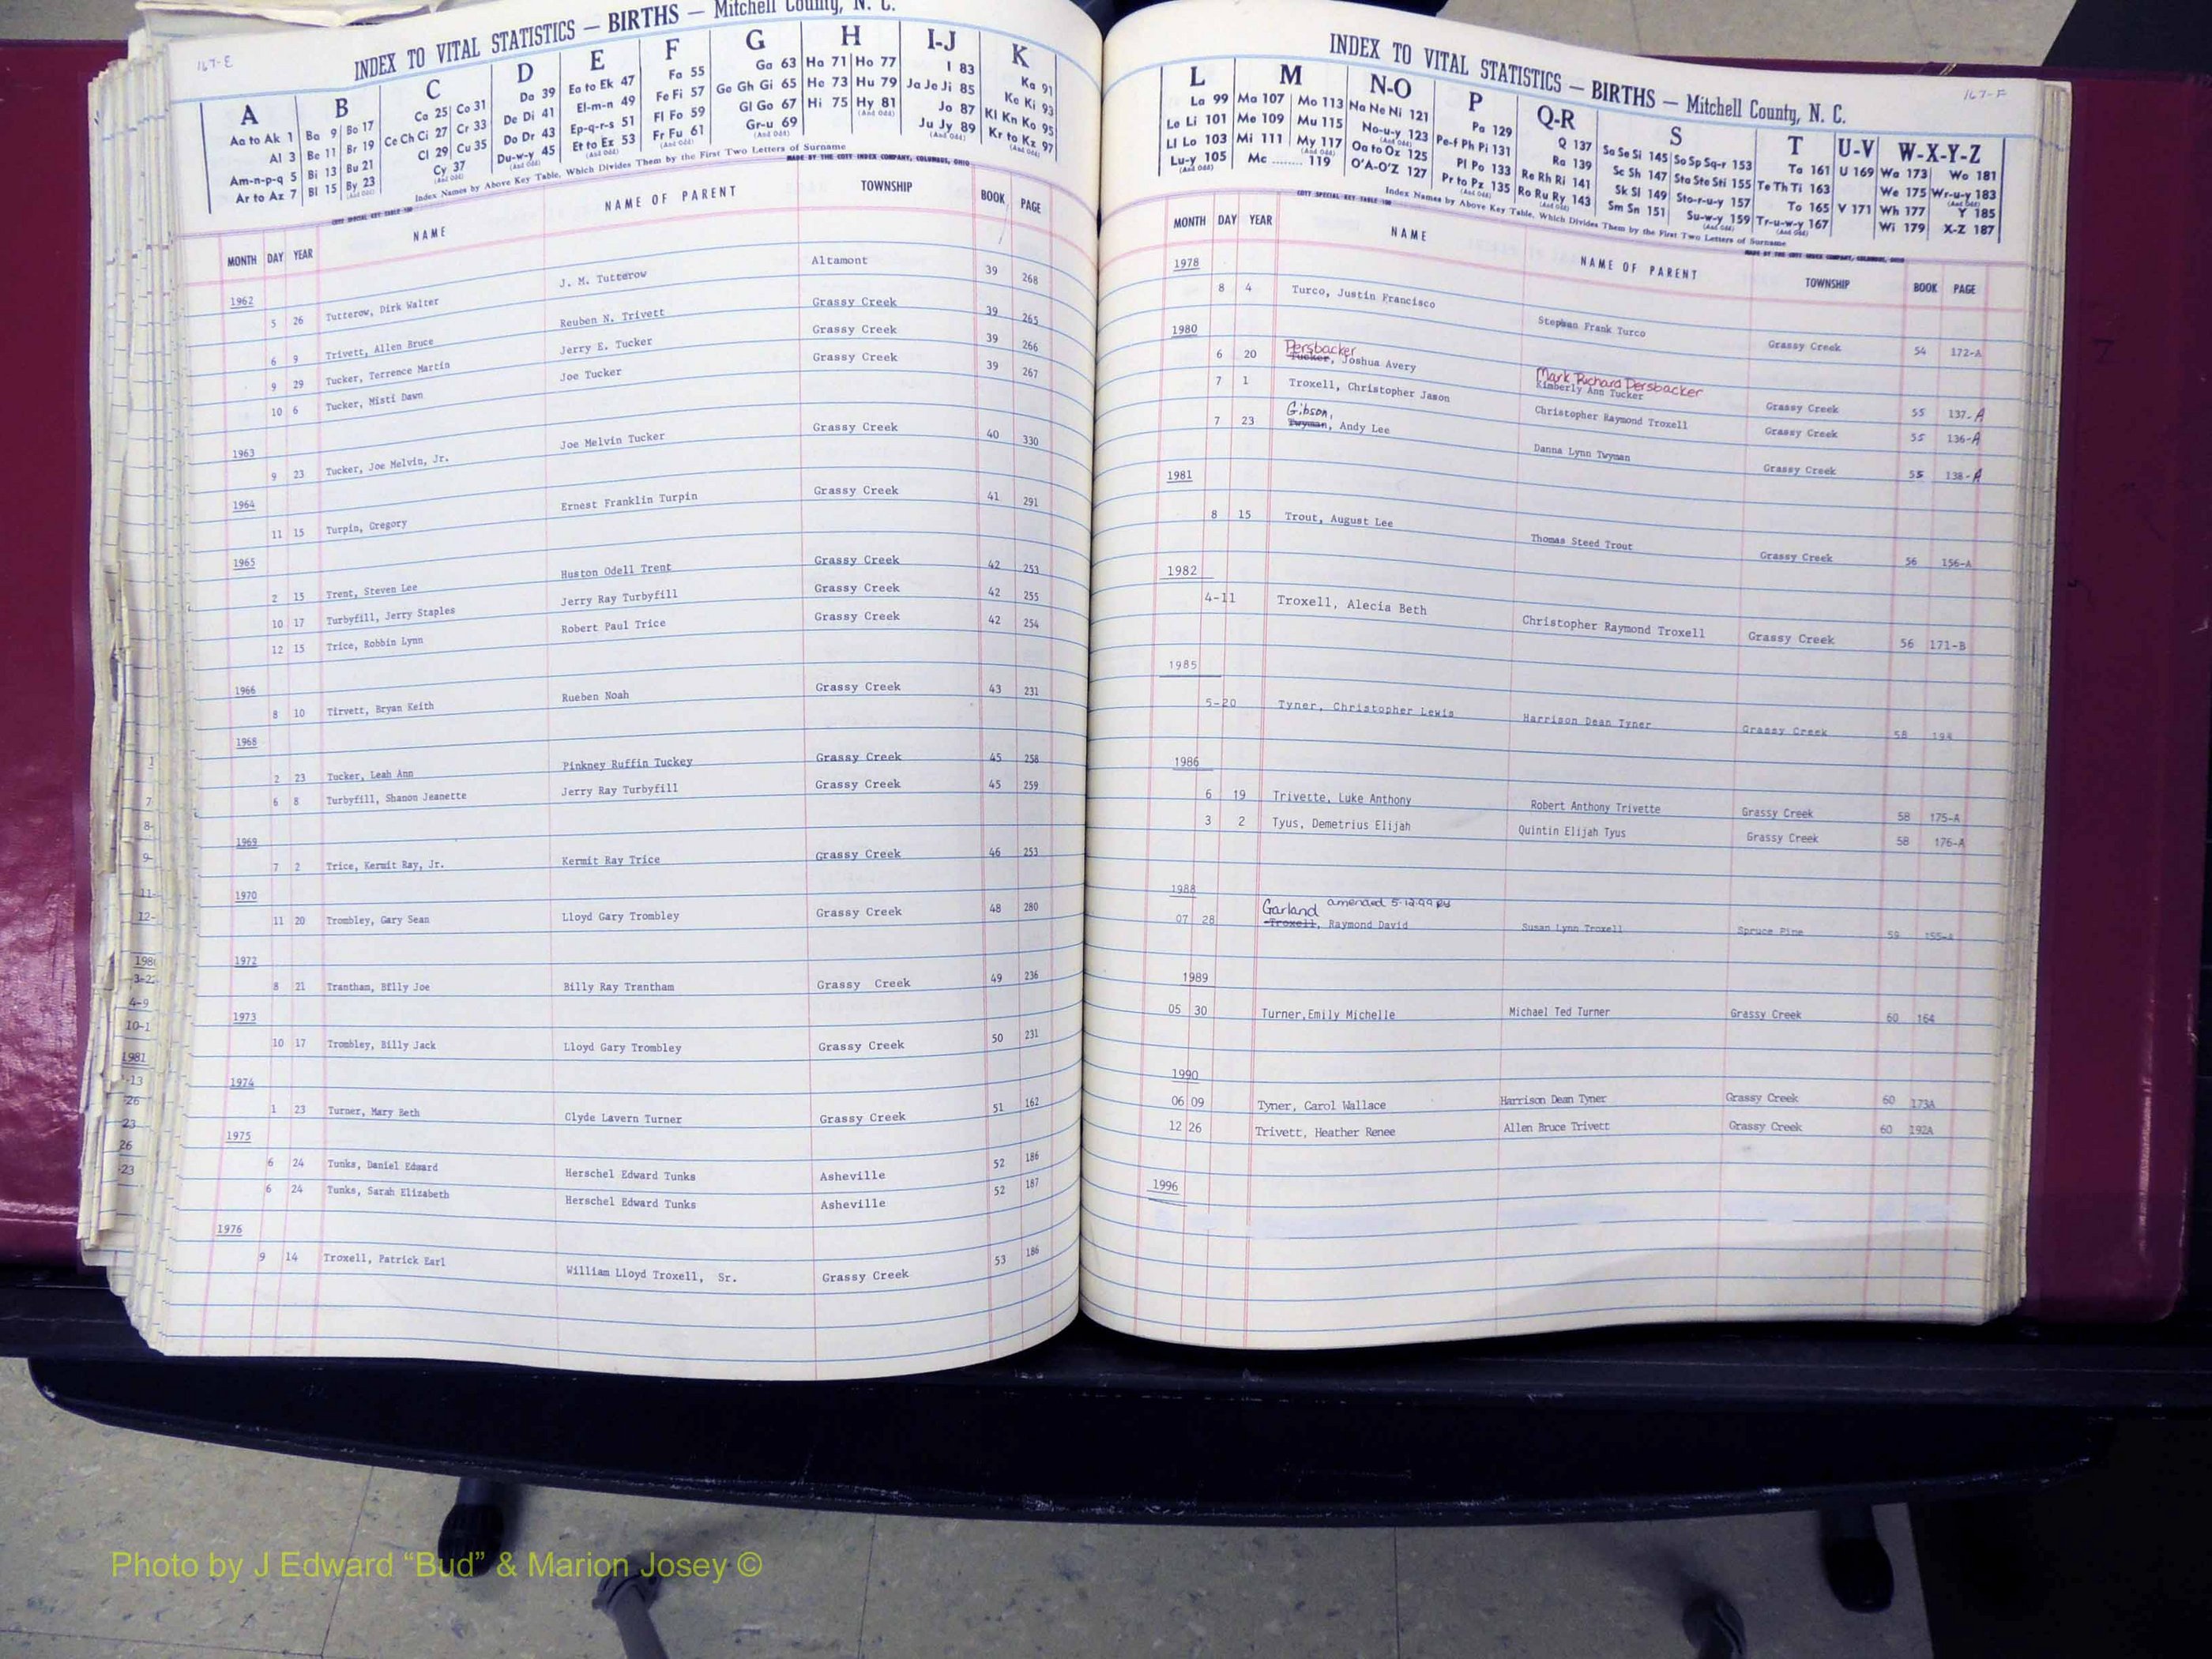 167-E
INDEX TO VITAL STATISTICS — BIRTHS — Mitchell County, N. C.
A B C D E F G H I-J K
Aa to Ak 1 Ba 9 Bo 17 Ca 25 Co 31 Da 39 Ea to Ek 47 Fa 55 Ga 63 Ha 71 Ho 77 I 83 Ka 91
Al 3 Be 11 Br 19 Ce Ch Ci 27 Cr 33 De Di 41 El-m-n 49 Fe Fi 57 Ge Gh Gi 65 He 73 Hu 79 Ja Je Ji 85 Ke Ki 93
Am-n-p-q 5 Bi 13 Bu 21 Cl 29 Cu 35 Do Dr 43 Ep-q-r-s 51 Fl Fo 59 Gl Go 67 Hi 75 Hy 81 (And Odd) Jo 87 Kl Kn Ko 95
Ar to Az 7 Bl 15 By 23 (And Odd) Cy 37 (And Odd) Du-w-y 45 (And Odd) Et to Ez 53 (And Odd) Fr Fu 61 (And Odd) Gr-u 69 (And Odd) Ju Jy 89 (And Odd) Kr to Kz 97 (And Odd)
Index Names by Above Key Table, Which Divides Them by the First Two Letters of Surname
MADE BY THE COTT INDEX COMPANY, COLUMBUS, OHIO
MONTH DAY YEAR NAME NAME OF PARENT TOWNSHIP BOOK PAGE
1962
5 26 Tutterow, Dirk Walter J. M. Tutterow Altamont 39 268
6 9 Trivett, Allen Bruce Reuben N. Trivett Grassy Creek 39 265
9 29 Tucker, Terrence Martin Jerry E. Tucker Grassy Creek 39 266
10 6 Tucker, Misti Dawn Joe Tucker Grassy Creek 39 267
1963
9 23 Tucker, Joe Melvin, Jr. Joe Melvin Tucker Grassy Creek 40 330
1964
11 15 Turpin, Gregory Ernest Franklin Turpin Grassy Creek 41 291
1965
2 15 Trent, Steven Lee Huston Odell Trent Grassy Creek 42 253
10 17 Turbyfill, Jerry Staples Jerry Ray Turbyfill Grassy Creek 42 255
12 15 Trice, Robbin Lynn Robert Paul Trice Grassy Creek 42 254
1966
8 10 Tirvett, Bryan Keith Rueben Noah Grassy Creek 43 231
1968
2 23 Tucker, Leah Ann Pinkney Ruffin Tuckey Grassy Creek 45 258
6 8 Turbyfill, Shanon Jeanette Jerry Ray Turbyfill Grassy Creek 45 259
1969
7 2 Trice, Kermit Ray, Jr. Kermit Ray Trice Grassy Creek 46 253
1970
11 20 Trombley, Gary Sean Lloyd Gary Trombley Grassy Creek 48 280
1972
8 21 Trantham, Billy Joe Billy Ray Trentham Grassy Creek 49 236
1973
10 17 Trombley, Billy Jack Lloyd Gary Trombley Grassy Creek 50 231
1974
1 23 Turner, Mary Beth Clyde Lavern Turner Grassy Creek 51 162
1975
6 24 Tunks, Daniel Edward Herschel Edward Tunks Asheville 52 186
6 24 Tunks, Sarah Elizabeth Herschel Edward Tunks Asheville 52 187
1976
9 14 Troxell, Patrick Earl William Lloyd Troxell, Sr. Grassy Creek 53 186
167-F
INDEX TO VITAL STATISTICS — BIRTHS — Mitchell County, N. C.
L M N-O P Q-R S T U-V W-X-Y-Z
La 99 Ma 107 Mo 113 Na Ne Ni 121 Pa 129 Q 137 Sa Se Si 145 So Sp Sq-r 153 Ta 161 U 169 Wa 173 Wo 181
Le Li 101 Me 109 Mu 115 No-u-y 123 (And Odd) Pe-f Ph Pi 131 Ra 139 Sc Sh 147 Sta Ste Sti 155 Te Th Ti 163 We 175 Wr-u-y 183 (And Odd)
Ll Lo 103 Mi 111 My 117 (And Odd) Oa to Oz 125 Pl Po 133 Re Rh Ri 141 Sk Sl 149 Sto-r-u-y 157 To 165 V 171 Wh 177 Y 185
Lu-y 105 (And Odd) Mc ........ 119 O'A-O'Z 127 Pr to Pz 135 (And Odd) Ro Ru Ry 143 (And Odd) Sm Sn 151 Su-w-y 159 (And Odd) Tr-u-w-y 167 (And Odd) Wi 179 X-Z 187
COTT SPECIAL KEY TABLE
Index Names by Above Key Table, Which Divides Them by the First Two Letters of Surname
MADE BY THE COTT INDEX COMPANY, COLUMBUS, OHIO
MONTH DAY YEAR NAME NAME OF PARENT TOWNSHIP BOOK PAGE
1978
8 4 Turco, Justin Francisco Stephan Frank Turco Grassy Creek 54 172-A
1980
Persbacker Mark Richard Persbacker
6 20 Tucker, Joshua Avery Kimberly Ann Tucker Grassy Creek 55 137-A
7 1 Troxell, Christopher Jason Christopher Raymond Troxell Grassy Creek 55 136-A
Gibson,
7 23 Twyman, Andy Lee Danna Lynn Twyman Grassy Creek 55 138-A
1981
8 15 Trout, August Lee Thomas Steed Trout Grassy Creek 56 156-A
1982
4-11 Troxell, Alecia Beth Christopher Raymond Troxell Grassy Creek 56 171-B
1985
5-20 Tyner, Christopher Lewis Harrison Dean Tyner Grassy Creek 58
1986
6 19 Trivette, Luke Anthony Robert Anthony Trivette Grassy Creek 58 175-A
3 2 Tyus, Demetrius Elijah Quintin Elijah Tyus Grassy Creek 58 176-A
1988
Garland amended
07 28 Troxell, Raymond David Susan Lynn Troxell Spruce Pine 59 155-A
1989
05 30 Turner,Emily Michelle Michael Ted Turner Grassy Creek 60 164
1990
06 09 Tyner, Carol Wallace Harrison Dean Tyner Grassy Creek 60 173A
12 26 Trivett, Heather Renee Allen Bruce Trivett Grassy Creek 60 192A
1996
Photo by J Edward “Bud” & Marion Josey ©